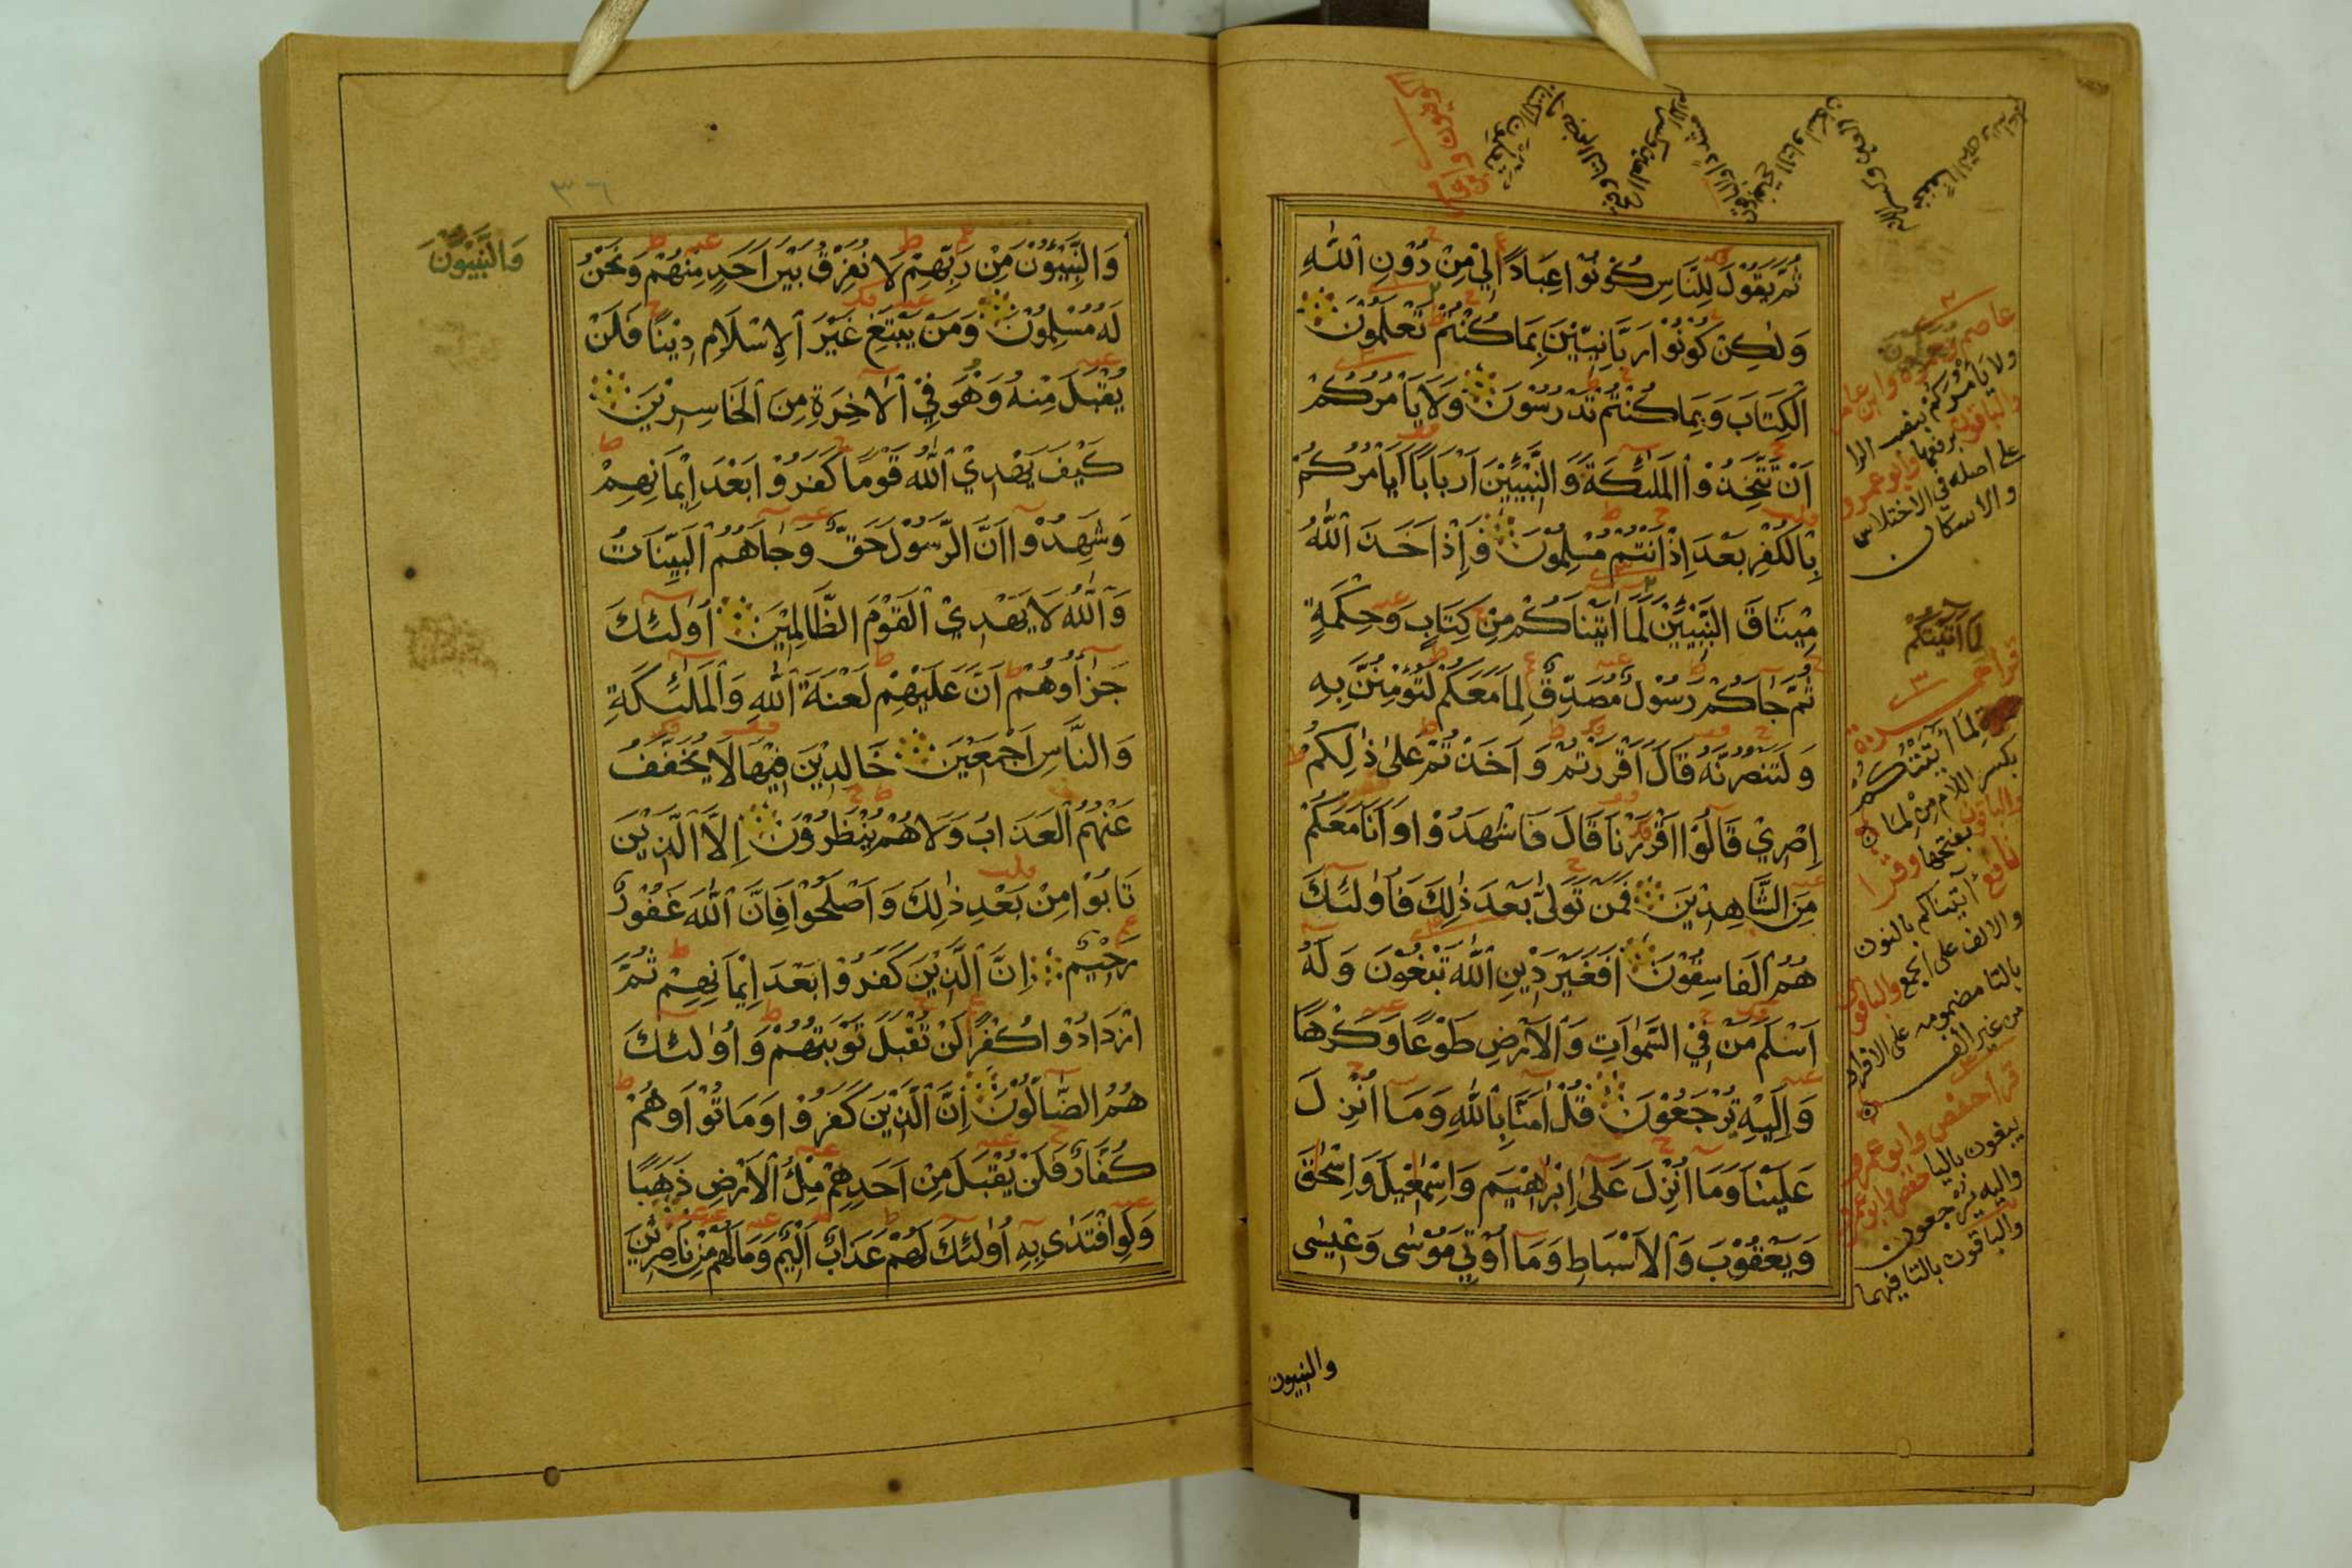 ثُمَّ يَقُوْلَ لِلنَّاسِ كُوْنُوْا عِبَادًا لِيْ مِنْ دُوْنِ اللّٰهِ
وَلٰكِنْ كُوْنُوْا رَبَّانِيِّيْنَ بِمَا كُنْتُمْ تَعْلَمُوْنَ
الْكِتَابَ وَبِمَا كُنْتُمْ تَدْرُسُوْنَ وَلَا يَأْمُرُكُمْ
اَنْ تَتَّخِذُوْا الْمَلٰئِكَةَ وَالنَّبِيِّئِيْنَ اَرْبَابًا اَيَأْمُرُكُمْ
بِالْكُفْرِ بَعْدَ اِذْ اَنْتُمْ مُسْلِمُوْنَ وَاِذْ اَخَذَ اللّٰهُ
مِيْثَاقَ النَّبِيِّيْنَ لَمَا اٰتَيْنَاكُمْ مِنْ كِتَابٍ وَحِكْمَةٍ
ثُمَّ جَاَكُمْ رَسُوْلٌ مُصَدِّقٌ لِمَا مَعَكُمْ لَتُؤْمِنُنَّ بِهِ
وَلَتَنْصُرُنَّهُ قَالَ اَقْرَرْتُمْ وَاَخَذْتُمْ عَلٰى ذٰلِكُمْ
اِصْرِيْ قَالُوْا اَقْرَرْنَا قَالَ فَاشْهَدُوْا وَاَنَا مَعَكُمْ
مِنَ الشَّاهِدِيْنَ فَمَنْ تَوَلّٰى بَعْدَ ذٰلِكَ فَاُوْلٰئِكَ
هُمُ الْفَاسِقُوْنَ اَفَغَيْرَ دِيْنِ اللّٰهِ تَبْغُوْنَ وَلَهُ
اَسْلَمَ مَنْ فِيْ السَّمٰوَاتِ وَالْاَرْضِ طَوْعًا وَكَرْهًا
وَاِلَيْهِ تُرْجَعُوْنَ قُلْ اٰمَنَّا بِاللّٰهِ وَمَا اُنْزِلَ
عَلَيْنَا وَمَا اُنْزِلَ عَلٰى اِبْرَاهِيْمَ وَاِسْمٰعِيْلَ وَاِسْحٰقَ
وَيَعْقُوْبَ وَالْاَسْبَاطِ وَمَا اُوْتِيَ مُوْسٰى وَعِيْسٰى
والنبيون
ولا يأمركم بنصب الرا
والباقون برفعها وابو عمرو
على اصله في الاختلاس
والاسكان
لَمَا اٰتَيْتُكُمْ
لِمَا اٰتَيْتُكُمْ
بكسر اللام من لما
والباقون بفتحها وقرا
نافع اٰتيناكم بالنون
والالف على الجمع والباقون
بالتا مضمومه على الافراد
من غير الف
قرا حفص وابو عمرو
يبغون باليا حفص
واليه يرجعون
والباقون بالتا فيهما
وَالنَّبِيُّونَ
٣٦
وَالنَّبِيُّوْنَ مِنْ رَبِّهِمْ لَا نُفَرِّقُ بَيْنَ اَحَدٍ مِنْهُمْ وَنَحْنُ
لَهُ مُسْلِمُوْنَ وَمَنْ يَبْتَغِ غَيْرَ الْاِسْلَامِ دِيْنًا فَلَنْ
يُقْبَلَ مِنْهُ وَهُوَ فِيْ الْاٰخِرَةِ مِنَ الْخَاسِرِيْنَ
كَيْفَ يَهْدِيْ اللّٰهُ قَوْمًا كَفَرُوْا بَعْدَ اِيْمَانِهِمْ
وَشَهِدُوْا اَنَّ الرَّسُوْلَ حَقٌّ وَجَاَهُمُ الْبَيِّنَاتُ
وَاللّٰهُ لَا يَهْدِيْ الْقَوْمَ الظَّالِمِيْنَ اُولٰئِكَ
جَزَاؤُهُمْ اَنَّ عَلَيْهِمْ لَعْنَةَ اللّٰهِ وَالْمَلٰئِكَةِ
وَالنَّاسِ اَجْمَعِيْنَ خَالِدِيْنَ فِيْهَا لَا يُخَفَّفُ
عَنْهُمُ الْعَذَابُ وَلَا هُمْ يُنْظَرُوْنَ اِلَّا الَّذِيْنَ
تَابُوْا مِنْ بَعْدِ ذٰلِكَ وَاَصْلَحُوْا فَاِنَّ اللّٰهَ غَفُوْرٌ
رَحِيْمٌ اِنَّ الَّذِيْنَ كَفَرُوْا بَعْدَ اِيْمَانِهِمْ ثُمَّ
ازْدَادُوْا كُفْرًا لَنْ تُقْبَلَ تَوْبَتُهُمْ وَاُوْلٰئِكَ
هُمُ الضَّالُّوْنَ اِنَّ الَّذِيْنَ كَفَرُوْا وَمَاتُوْا وَهُمْ
كُفَّارٌ فَلَنْ يُقْبَلَ مِنْ اَحَدِهِمْ مِلْءُ الْاَرْضِ ذَهَبًا
وَلَوِ افْتَدٰى بِهِ اُوْلٰئِكَ لَهُمْ عَذَابٌ اَلِيْمٌ وَمَا لَهُمْ مِنْ نَاصِرِيْنَ